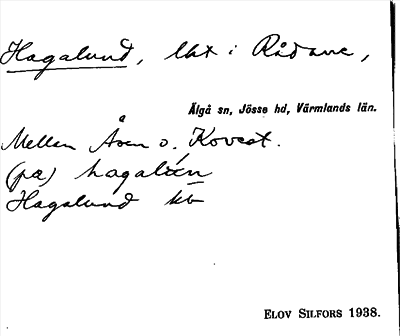 Hagalund, lht i Rådane,
Älgå sn, Jösse hd, Värmlands län.
Mellan Åsen o.
(på) hagalunn
Hagalund kb
ELOV SILFORS 1938.